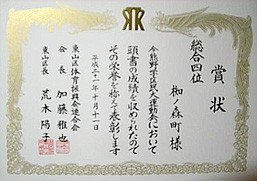 賞状
総合四位
椥ノ森町様
今熊野学区民大運動会において
頭書の成績を收められたので
その栄誉を称えて表彰します
平成二十一年十月十一日
東山区体育振興会連合会
会長 加藤雅也
東山区長 荒木陽子